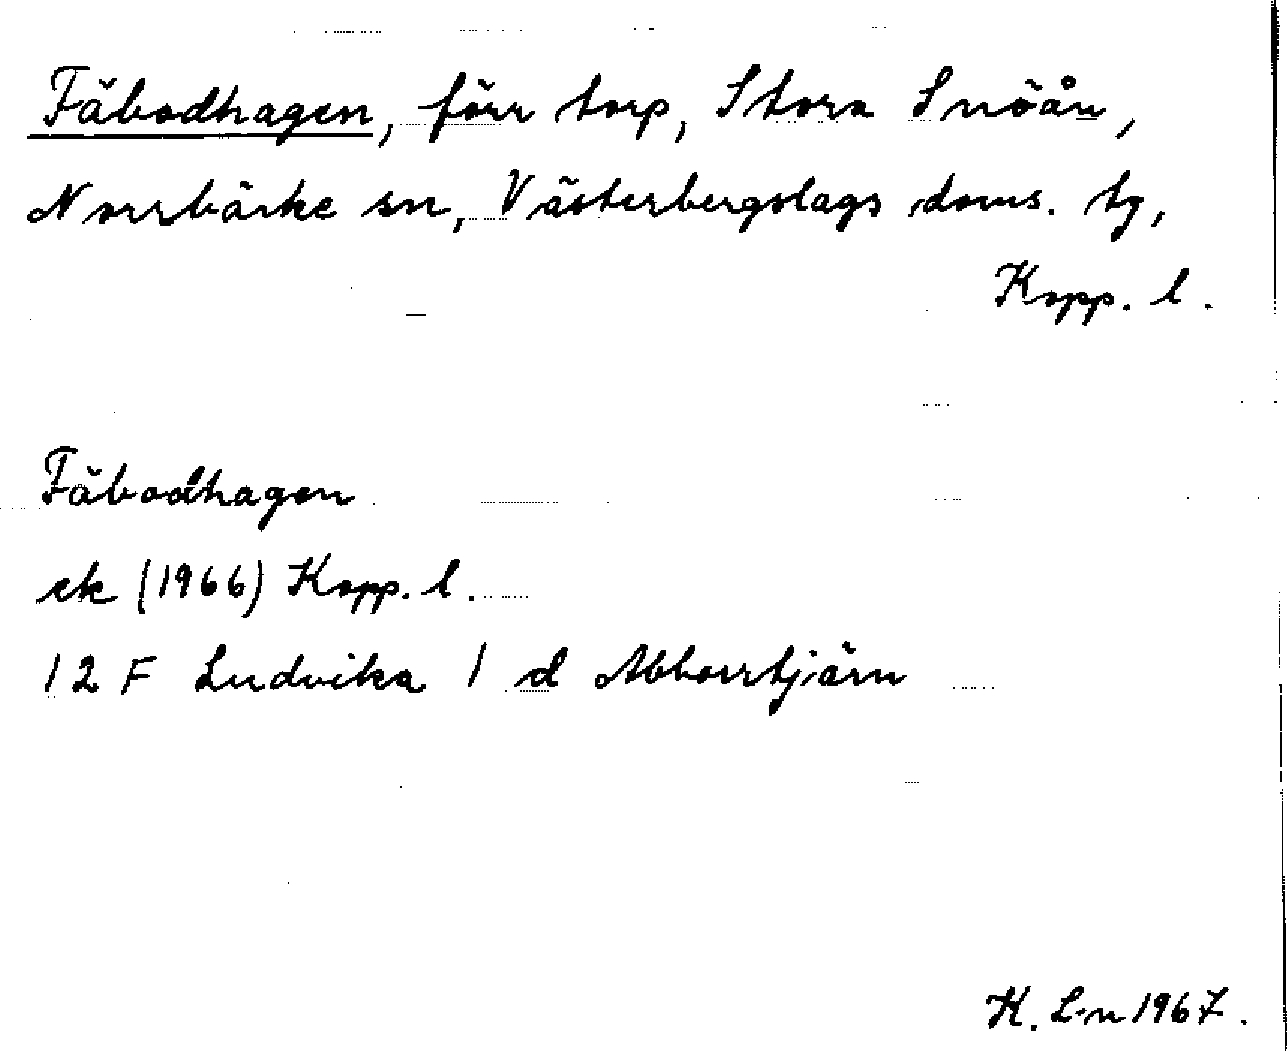 Fäbodhagen, förr torp, Stora Snöån,
Norrbärke sn, Västerbergslags doms. tg,
Kopp. l.
Fäbodhagen
ek (1966) Kopp. l.
12 F Ludvika 1 d Abborrtjärn
K. L-n 1967.